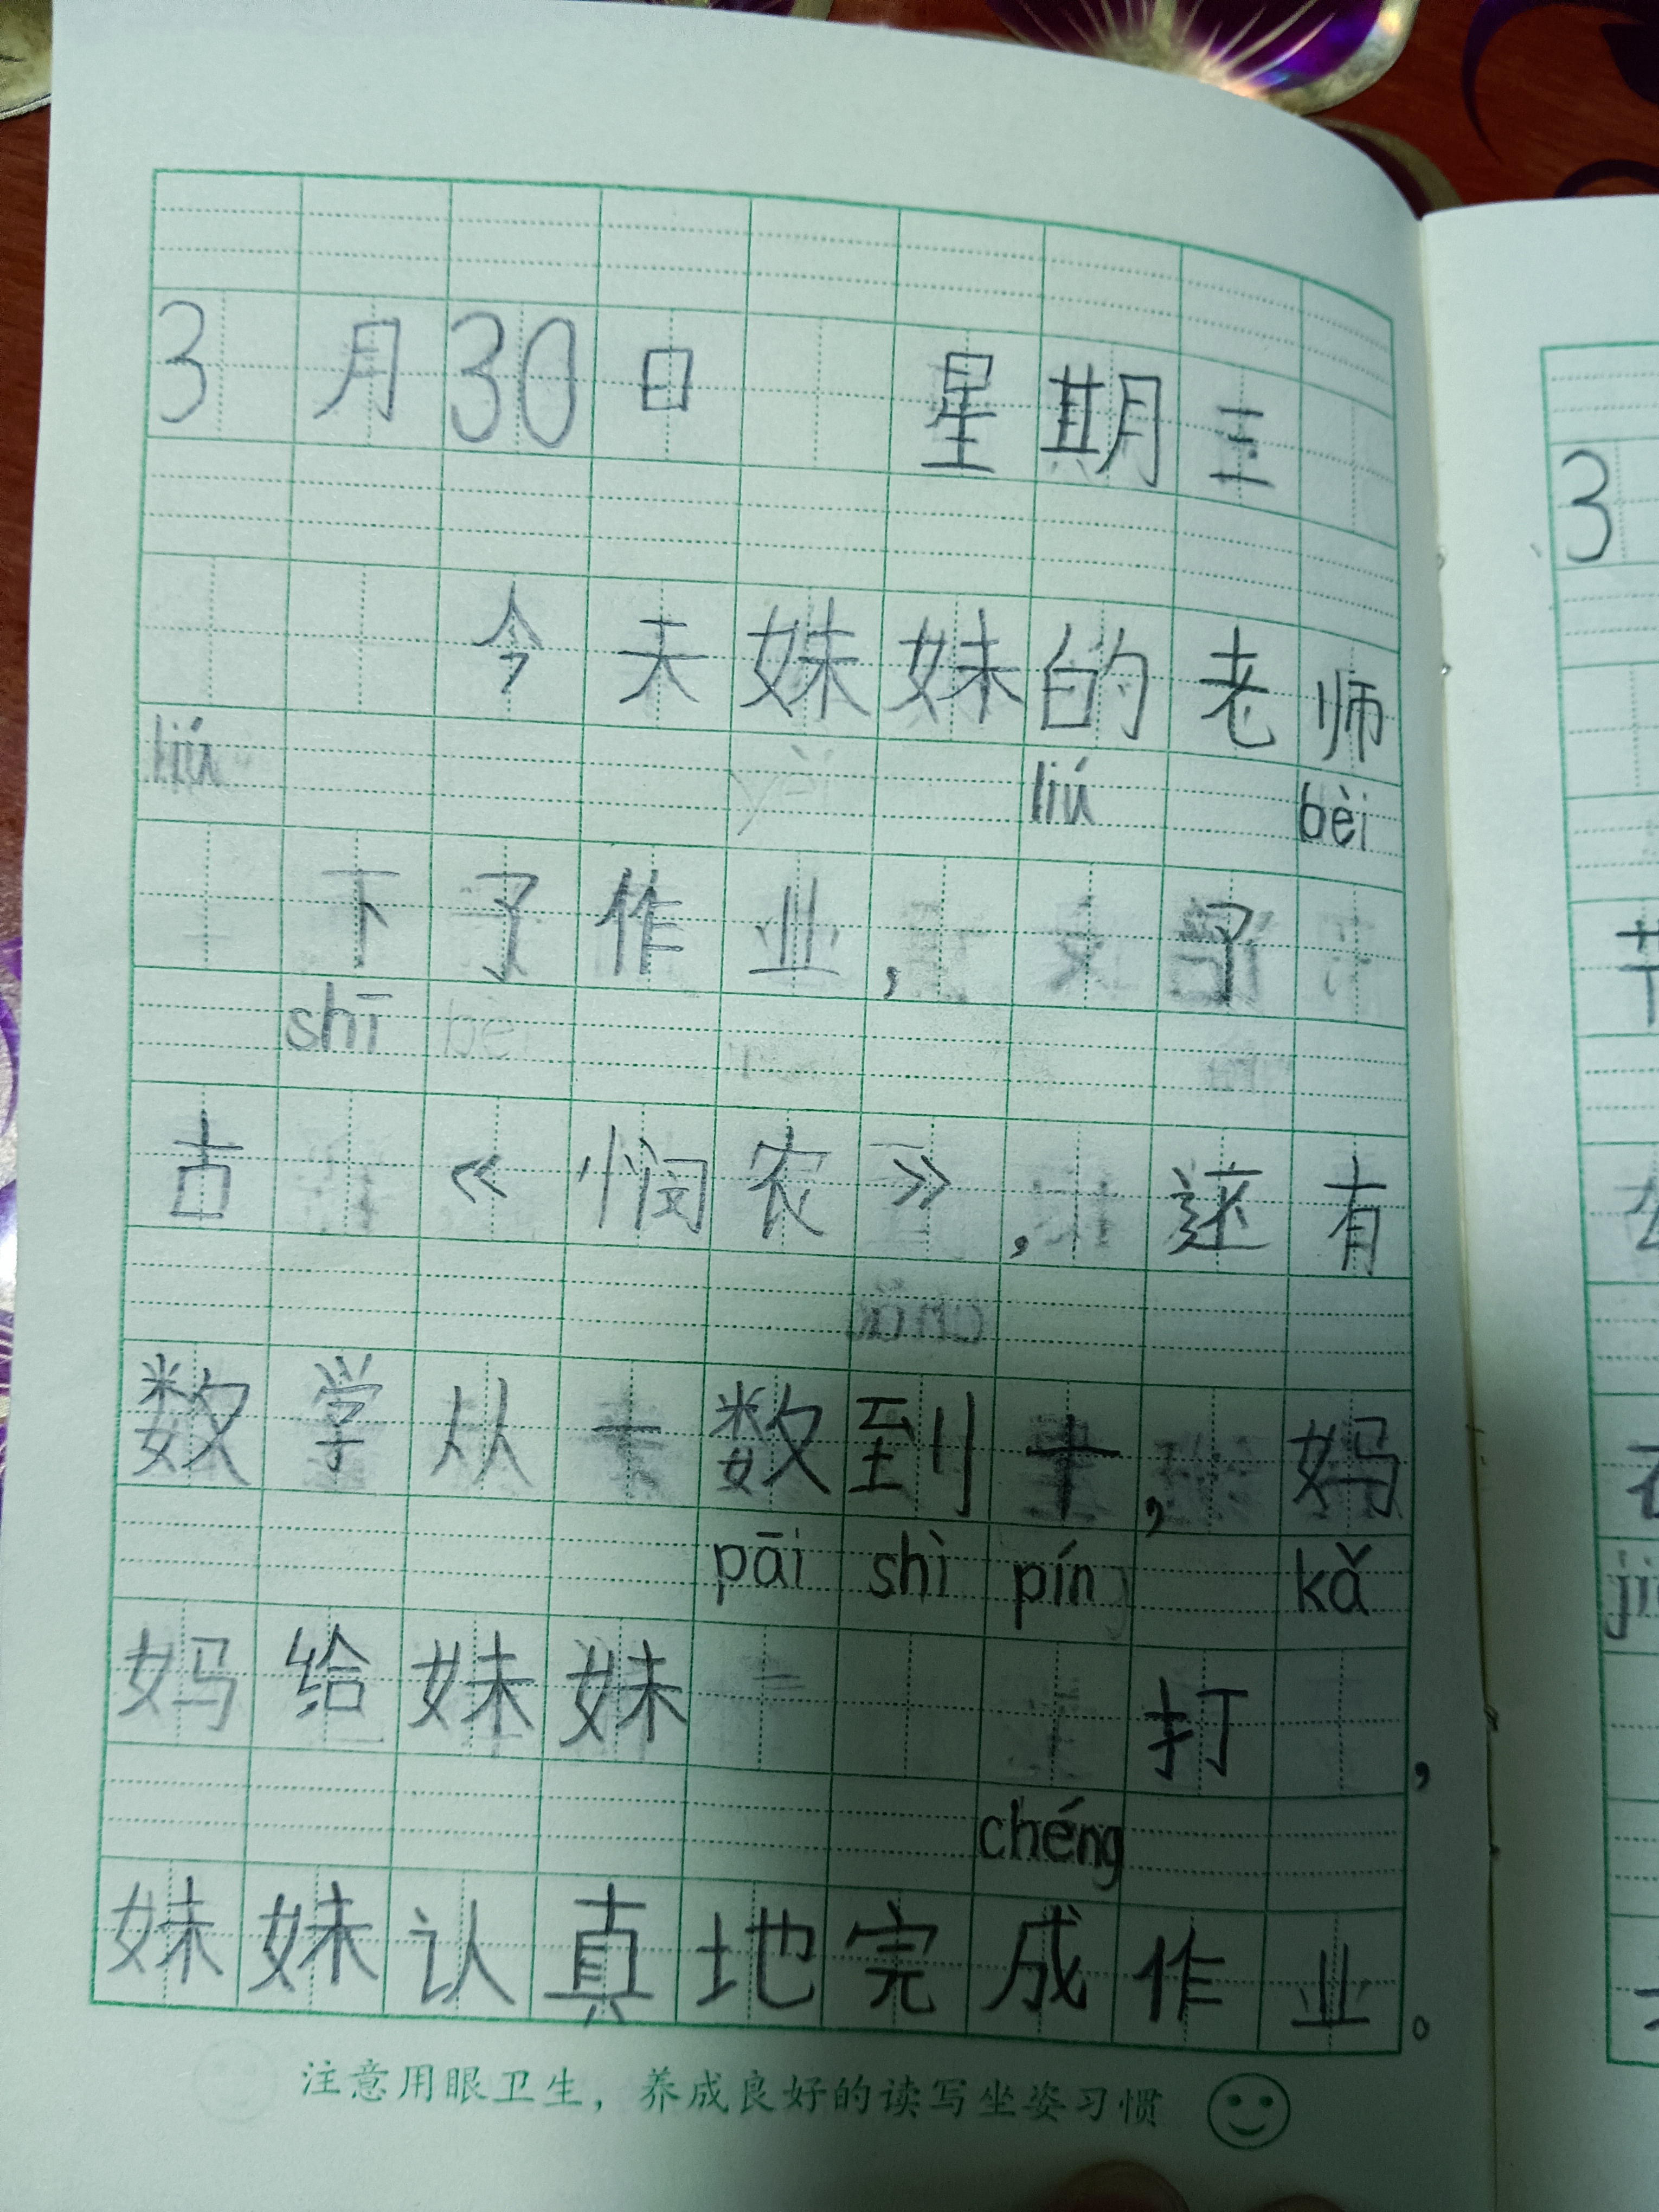 3月30日 星期三
今天妹妹的老师
liú liú bèi
下了作业，了
shī
古《悯农》，还有
数学从一数到十，妈
pāi shì pín kǎ
妈给妹妹打，
chéng
妹妹认真地完成作业。
注意用眼卫生，养成良好的读写坐姿习惯
3